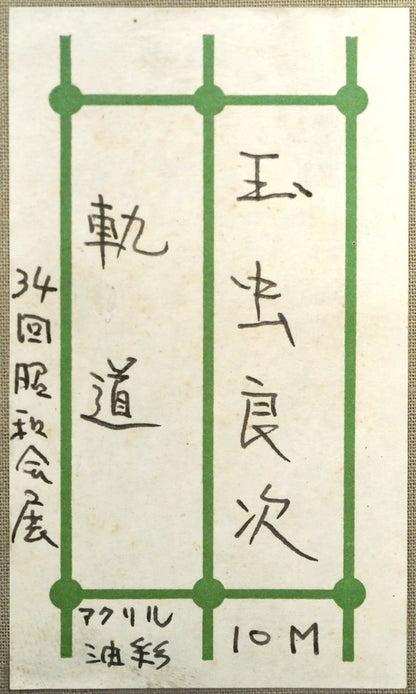 玉虫良次
10M
軌道
アクリル
油彩
34回昭和会展